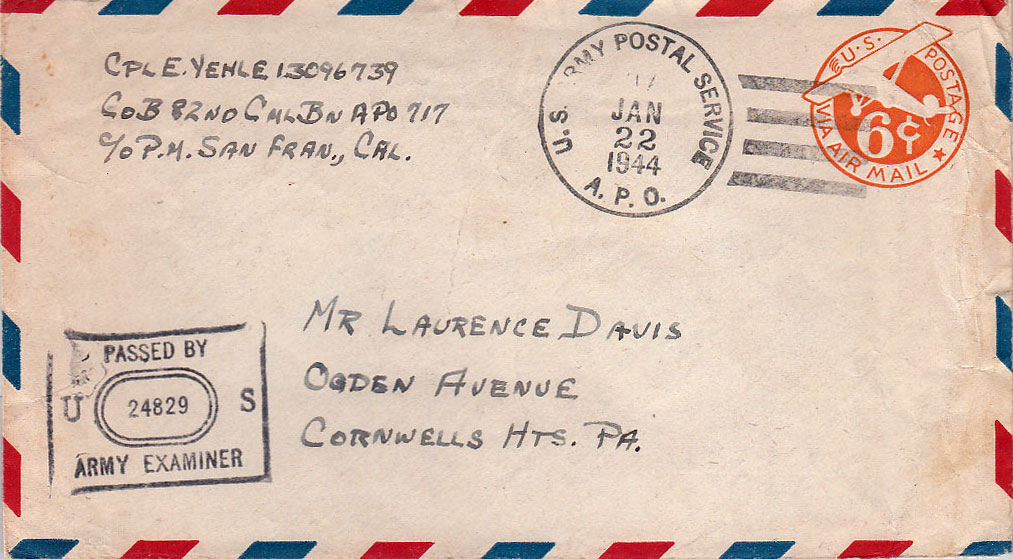 CPL E. YEHLE 13096739
CO B 82ND CML BN APO 717
C/O P.M. SAN FRAN., CAL.
U.S. ARMY POSTAL SERVICE
JAN
22
1944
A. P. O.
U.S. POSTAGE
6¢
VIA AIR MAIL
MR LAURENCE DAVIS
OGDEN AVENUE
CORNWELLS HTS. PA.
PASSED BY
U 24829 S
ARMY EXAMINER